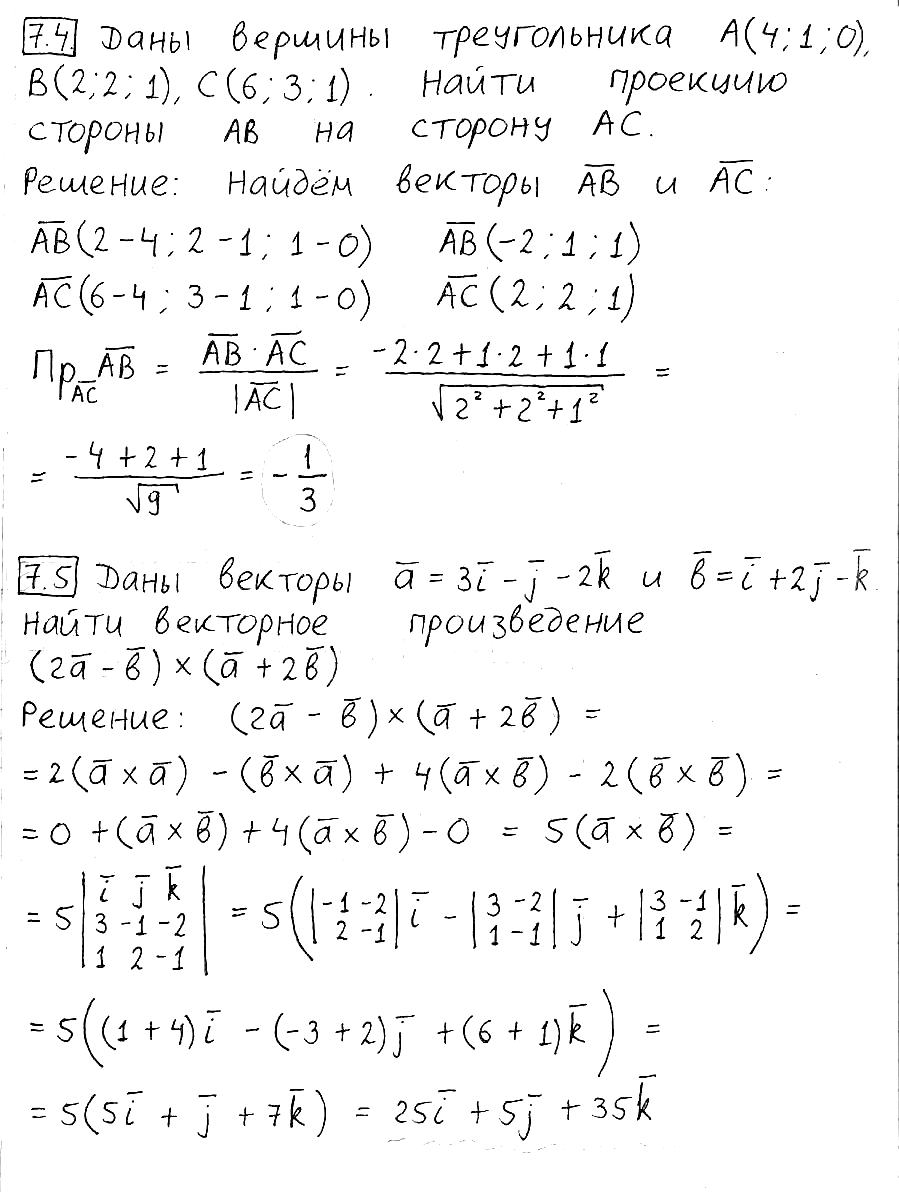 7.4 Даны вершины треугольника A(4;1;0),
B(2;2;1), C(6;3;1). Найти проекцию
стороны AB на сторону AC.
Решение: Найдём векторы A̅B̅ и A̅C̅:
A̅B̅(2-4;2-1;1-0) A̅B̅(-2;1;1)
A̅C̅(6-4;3-1;1-0) A̅C̅(2;2;1)
Пр_A̅C̅ A̅B̅ = (A̅B̅·A̅C̅)/|A̅C̅| = (-2·2+1·2+1·1)/√(2²+2²+1²) =
= (-4+2+1)/√9 = -1/3
7.5 Даны векторы a̅ = 3i̅ - j̅ - 2k̅ и в̅ = i̅ + 2j̅ - k̅
Найти векторное произведение
(2a̅ - в̅)×(a̅ + 2в̅)
Решение: (2a̅ - в̅)×(a̅ + 2в̅) =
= 2(a̅×a̅) - (в̅×a̅) + 4(a̅×в̅) - 2(в̅×в̅) =
= 0 + (a̅×в̅) + 4(a̅×в̅) - 0 = 5(a̅×в̅) =
= 5|i̅ j̅ k̅; 3 -1 -2; 1 2 -1| = 5(|-1 -2; 2 -1|i̅ - |3 -2; 1 -1|j̅ + |3 -1; 1 2|k̅) =
= 5((1+4)i̅ - (-3+2)j̅ + (6+1)k̅) =
= 5(5i̅ + j̅ + 7k̅) = 25i̅ + 5j̅ + 35k̅